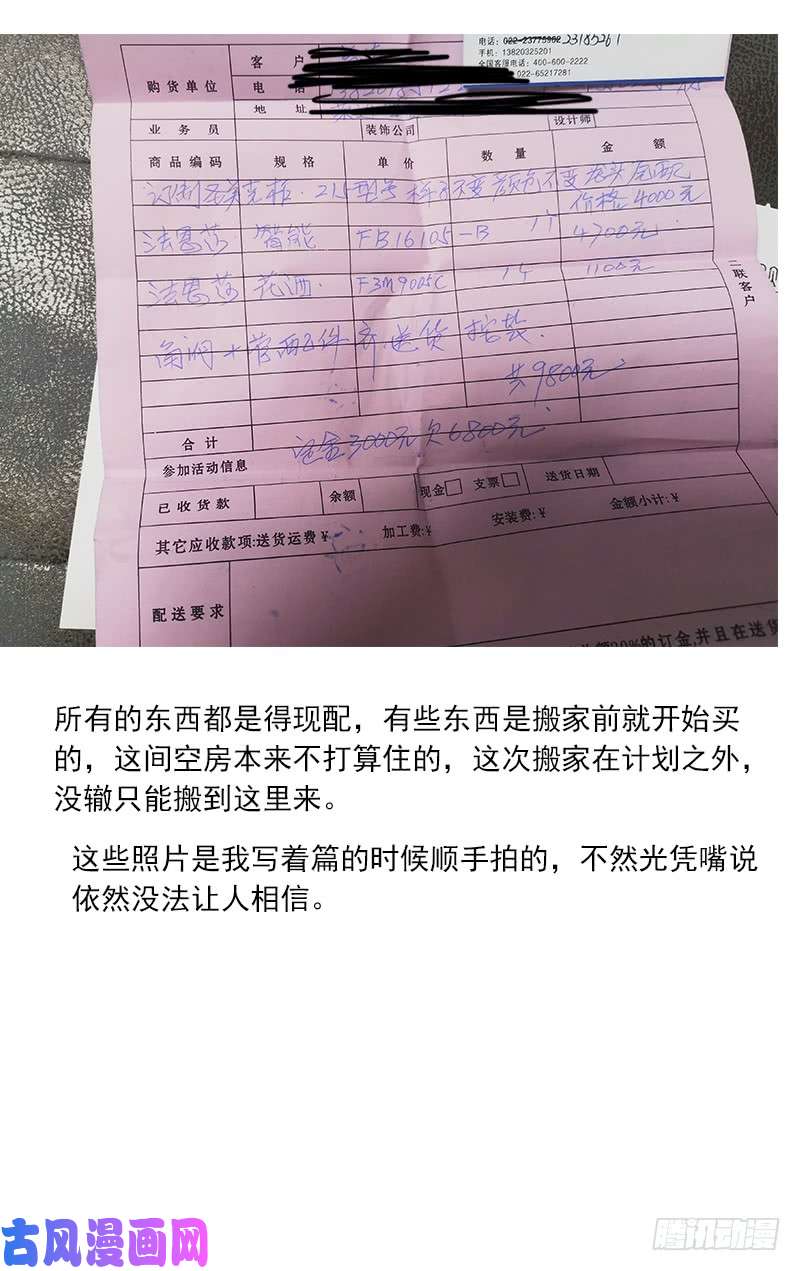 电话: 022-23775962 23185261
手机: 13820325201
全国客服电话: 400-600-2222
022-65217281
购货单位
客户
电话
地址
业务员 装饰公司 设计师
商品编码 规格 单价 数量 金额
价格4000元
法恩莎 智能 FB16105-B 1个 4700元
法恩莎 花洒 F3M9005C 1个 1100元
共9800元
合计 定金3000元 欠6800元
参加活动信息
已收货款 余额 现金□ 支票□ 送货日期
其它应收款项:送货运费¥ 加工费:¥ 安装费:¥ 金额小计:¥
配送要求
%的订金,并且在送货
二联客户
所有的东西都是得现配，有些东西是搬家前就开始买
的，这间空房本来不打算住的，这次搬家在计划之外，
没辙只能搬到这里来。
这些照片是我写着篇的时候顺手拍的，不然光凭嘴说
依然没法让人相信。
古风漫画网
腾讯动漫